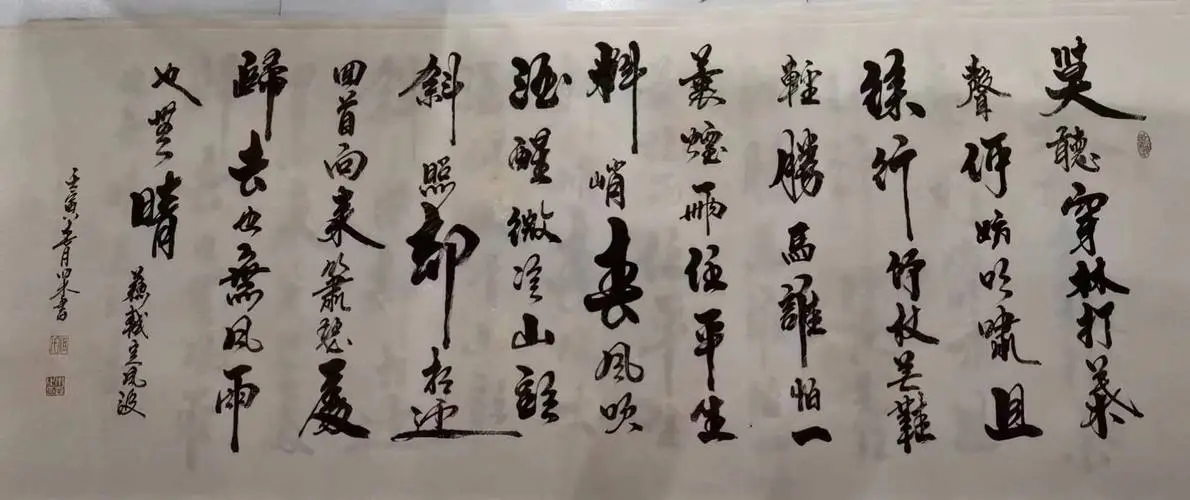 莫聽穿林打葉
聲何妨吟嘯且
徐行竹杖芒鞋
輕勝馬誰怕一
蓑煙雨任平生
料峭春風吹
酒醒微冷山頭
斜照却相迎
回首向来蕭瑟處
歸去也無風雨
也無晴
蘇軾定風波
壬寅月書